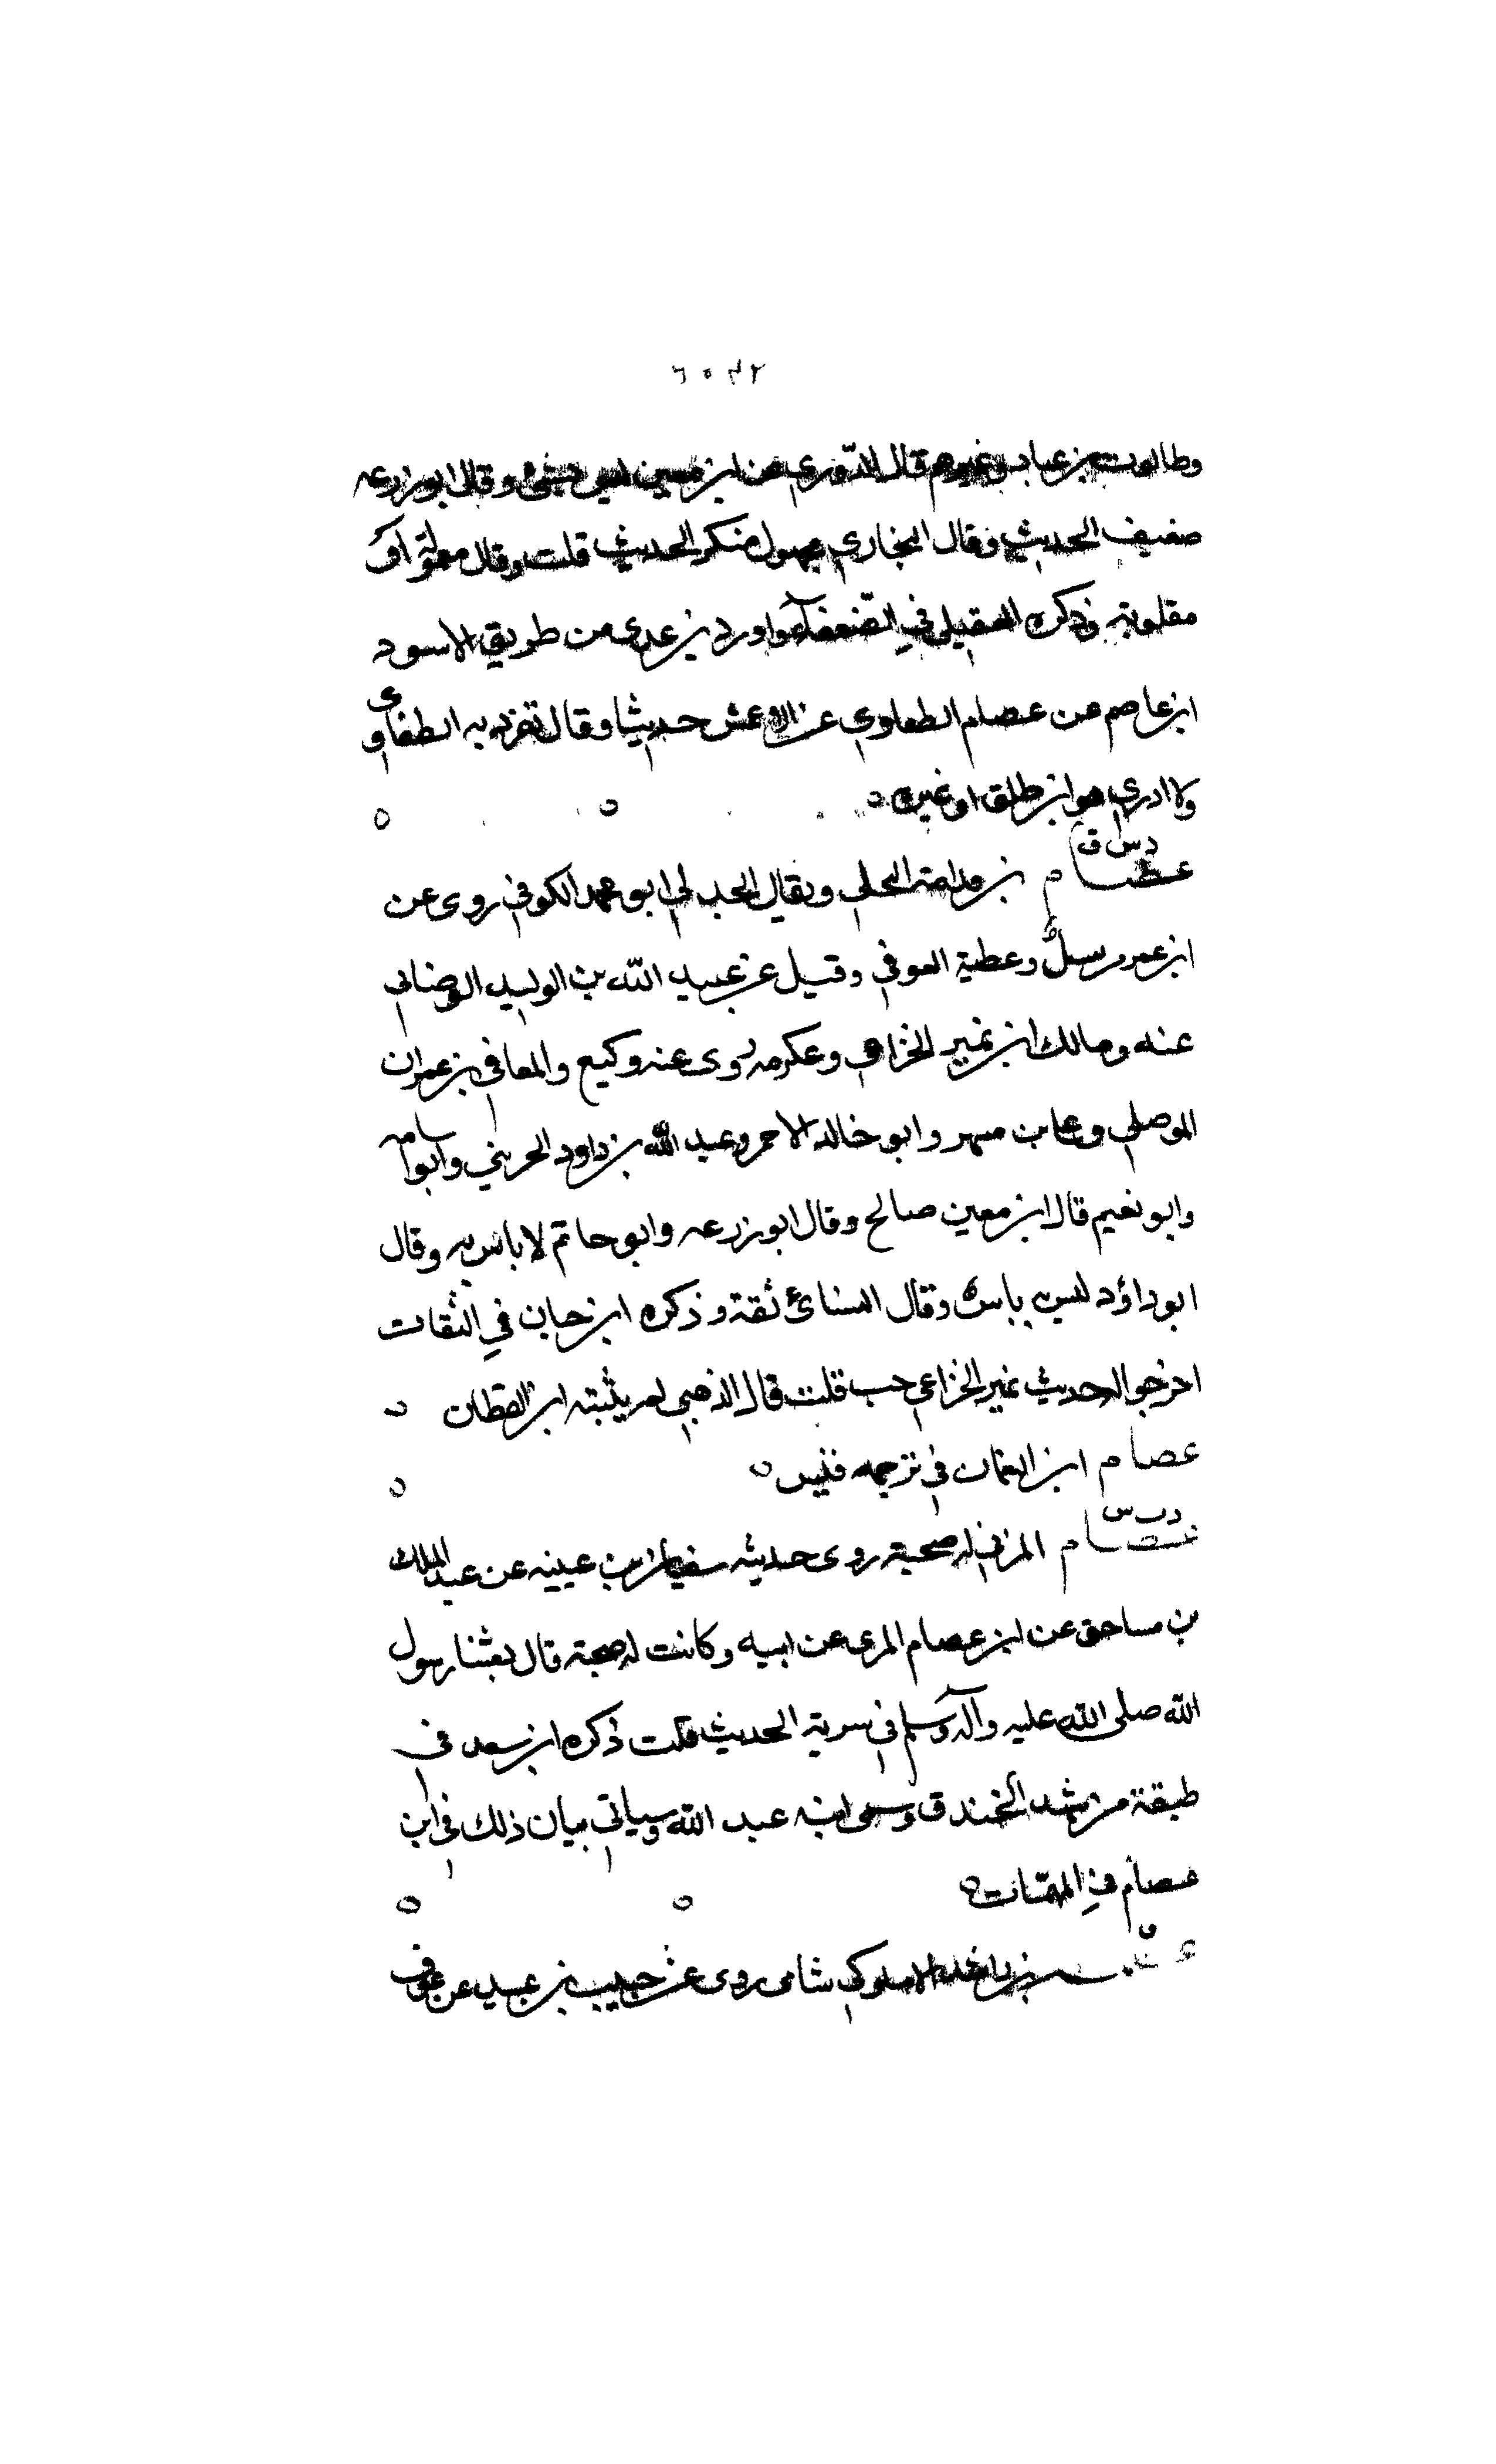 وطالوت بن عباد وغيرهم قال الدوري عن ابن معين ليس بشئ وقال ابو زرعه
ضعيف الحديث وقال البخاري مجهول منكر الحديث قلت وقال
مقلوبة وذكره العقيلي في الضعفآء واورد بن عدى من طريق الاسود
ابن عاصم عن عصام الطفاوي عن الاعمش حديثا وقال تفرد به الطفاوى
ولا ادري هو ابن طلق او غيره
د س ق
عصام بن قدامة البجلي ويقال الجدلي ابو محمد الكوفي روى عن
ابن عمر مرسلٌ وعطية العوفي وقيل عن عبيد الله بن الوليد الوصافي
عنه ومالك ابن نمير الخزاعي وعكرمه روى عنه وكيع والمعافي بن عمران
الموصلي وعلي بن مسهر وابو خالد الاحمر وعبد الله بن داود الخريبي وابو اسامه
وابو نعيم قال ابن معين صالح وقال ابو زرعه وابو حاتم لا باس به وقال
ابو داؤد ليس به باس وقال النسائي ثقة وذكره ابن حبان في الثقات
اخرجوا له حديث نمير الخزاعي حسب قلت قال الذهبي لم يثبته ابن القطان
عصام ابن النعمان في ترجمه قيس
د ت س
عصام المزني له صحبة روى حديثه سفيان بن عيينه عن عبد الملك
بن مساحق عن ابن عصام المزي عن ابيه وكانت له صحبة قال بعثنا رسول
الله صلى الله عليه وآله وسلم في سرية الحديث قلت ذكره ابن سعد في
طبقة من شهد الخندق وسمى ابنه عبد الله وسياتي بيان ذلك في ابن
عصام في المبهمات
ق
بن راشد الاملوكي شامى روى عن حبيب بن عبيد عن عوف